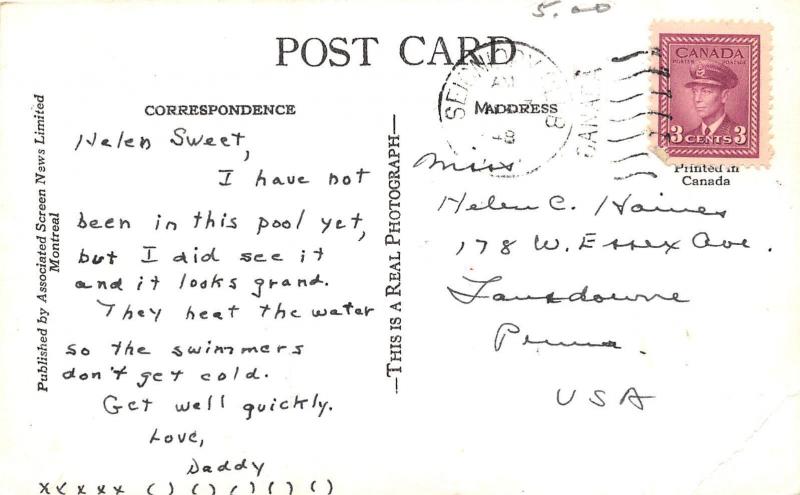 5.00
POST CARD
CORRESPONDENCE
ADDRESS
CANADA
CANADA
POSTES POSTAGE
3 CENTS 3
Printed in
Canada
Published by Associated Screen News Limited
Montreal
—THIS IS A REAL PHOTOGRAPH—
Helen Sweet,
I have not
been in this pool yet,
but I did see it
and it looks grand.
They heat the water
so the swimmers
don't get cold.
Get well quickly.
Love,
Daddy
xxxxx ()()()()()
Miss
Helen C. Haines
178 W. Essex Ave.
Lansdowne
Penna.
USA